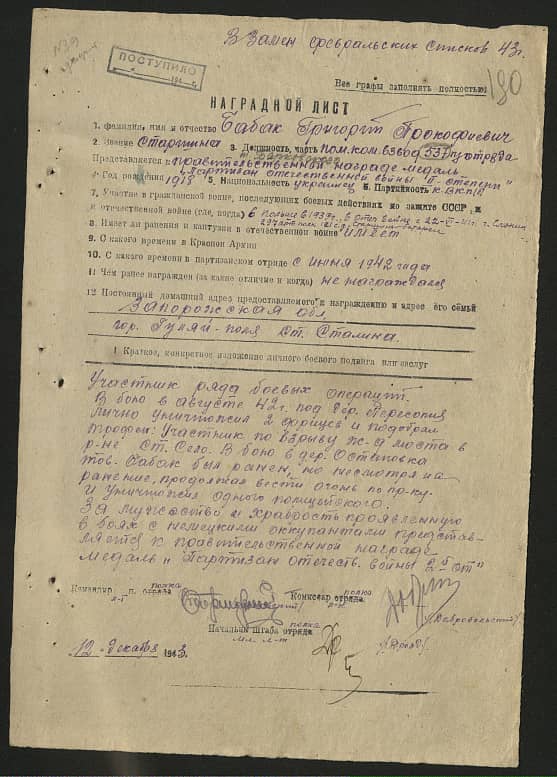 В замен февральских списков 43г.
ПОСТУПИЛО
194
Все графы заполнять полностью!
190
НАГРАДНОЙ ЛИСТ
1. фамилия, имя и отчество Бабак Григорий Прокофиевич
2. Звание Старшина 3. Должность, часть пом.ком.взвод 537 отряда
Представляется к правительственной награде медаль
"Партизан отечественной войны II степени"
4. Год рождения 1918 5. Национальность украинец 6. Партийность к.ВКП(б
7. Участие в гражданской войне, последующих боевых действиях по защите СССР, и
в отечественной войне (где, когда) в Польше в 1939г., в отеч. войне с 22-VI-41г. г. Слоним
8. Имеет ли ранения и контузии в отечественной войне имеет
9. С какого времени в Красной Армии
10. С какого времени в партизанском отряде с июня 1942 года
11. Чем ранее награжден (за какие отличие и когда) не награждался
12 Постоянный домашний адрес предоставляемого к награждению и адрес его семьи
Запорожская обл.
гор. Гуляй-поля ст. Сталина.
1 Краткое, конкретное изложение личного боевого подвига или заслуг
Участник ряда боевых операций.
В бою в августе 42г. под дер.
Лично уничтожил 2 фрицев и подобрал
трофеи. Участник по взрыву ж-д моста в
р-не ст. Село. В бою в дер.
тов. Бабак был ранен, но несмотря на
ранение, продолжал вести огонь по пр-ку
и уничтожил одного полицейского.
За мужество и храбрость проявленную
в боях с немецкими оккупантами представ-
ляется к правительственной награде
медаль "Партизан отечеств. войны 2й ст"
Командир п. отряда полка
Комиссар отряда полка
Начальник штаба отряда полка
мл. л-т
12 декабря 1943.